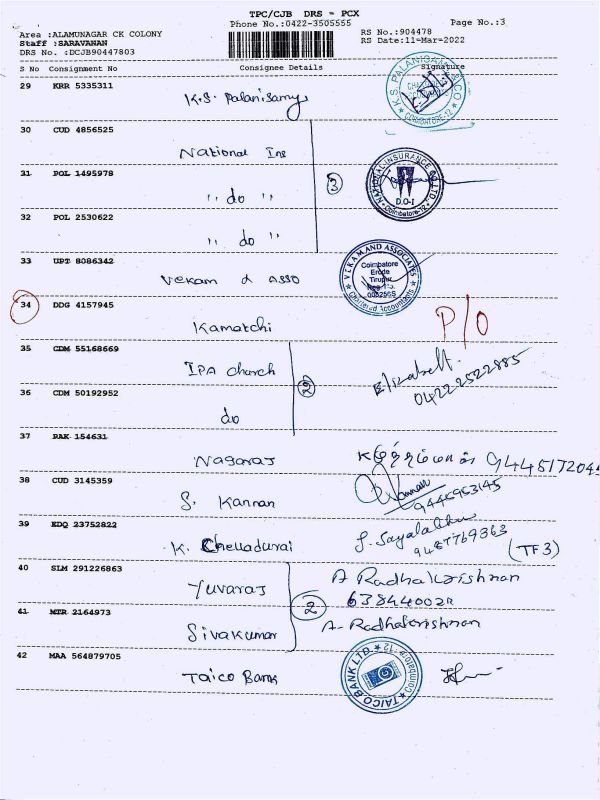 TPC/CJB DRS - PCX
Phone No.:0422-3505555
Page No.:3
Area :ALAMUNAGAR CK COLONY
Staff :SARAVANAN
DRS No. :DCJB90447803
RS No.:904478
RS Date:11-Mar-2022
S No Consignment No Consignee Details Signature
29 KRR 5335311
K.S. Palanisamy
K.S. PALANISAMY & CO
COIMBATORE-12
30 CUD 4856525
National Ins
31 POL 1495978
" do "
3
NATIONAL INSURANCE CO. LTD.
D.O-I
Coimbatore-12
32 POL 2530622
" do "
33 UPT 8086342
Vekam & Asso
VEKAM AND ASSOCIATES
Coimbatore
Erode
Tirupur
Reg No.
Chartered Accountants
34 DDG 4157945
Kamatchi
P/O
35 CDM 55168669
IPA church
2
Elizabeth.
04222522885
36 CDM 50192952
do
37 PAK 154631
Nagaraj
38 CUD 3145359
S. Kannan
Kannan
39 EDQ 23752822
K. Chelladurai
9487769363
(TF3)
40 SLM 291226863
Yuvaraj
2
A Radhakrishnan
41 MTR 2164973
Sivakumar
A-Radhakrishnan
42 MAA 564879705
Taico Bank
TAICO BANK LTD.
Coimbatore-12